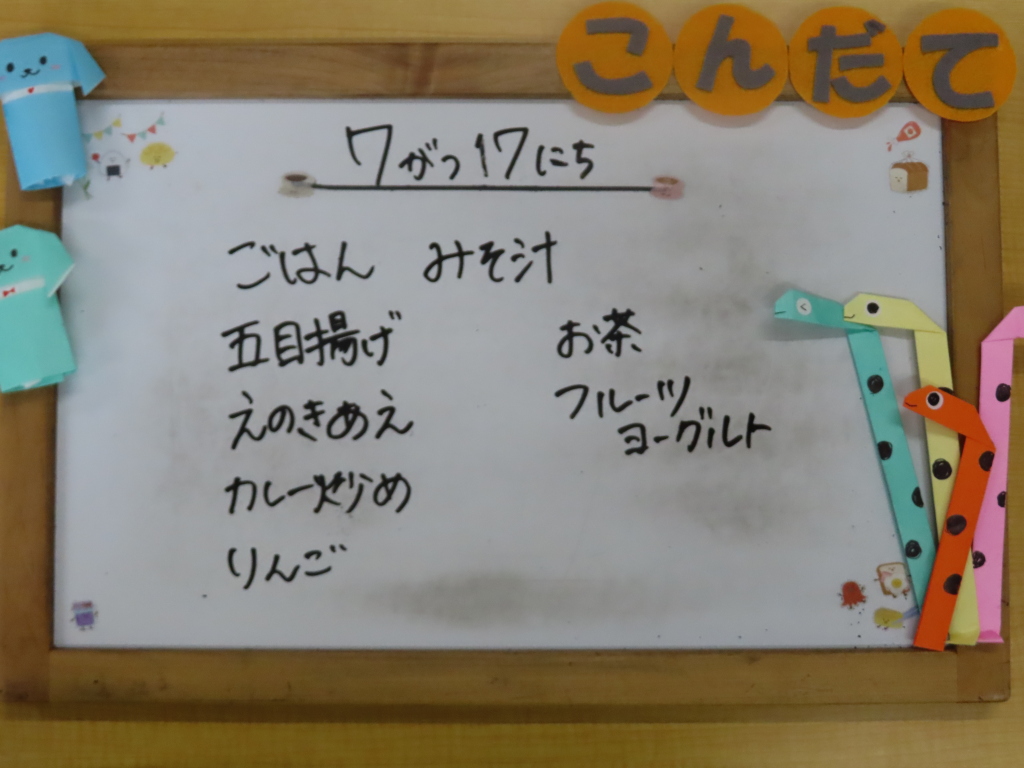 こんだて
7がつ17にち
ごはん　みそ汁
五目揚げ
えのきあえ
カレー炒め
りんご
お茶
フルーツ
ヨーグルト